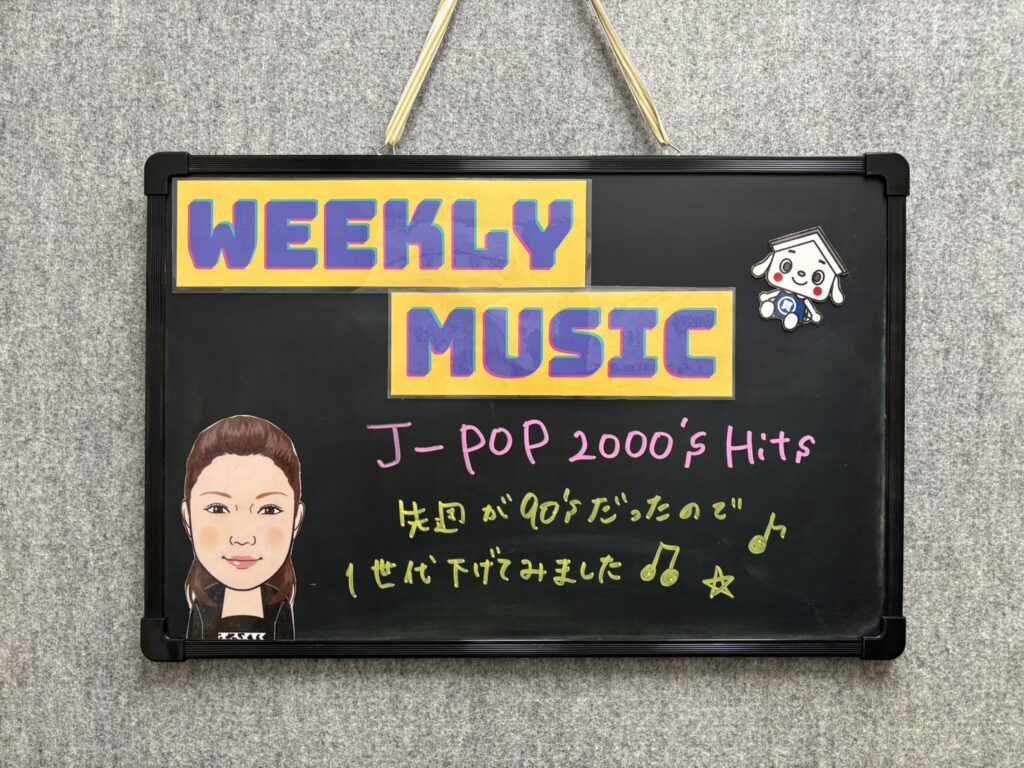 WEEKLY
MUSIC
J-POP 2000's Hits
先週が90'sだったので
1世代下げてみました